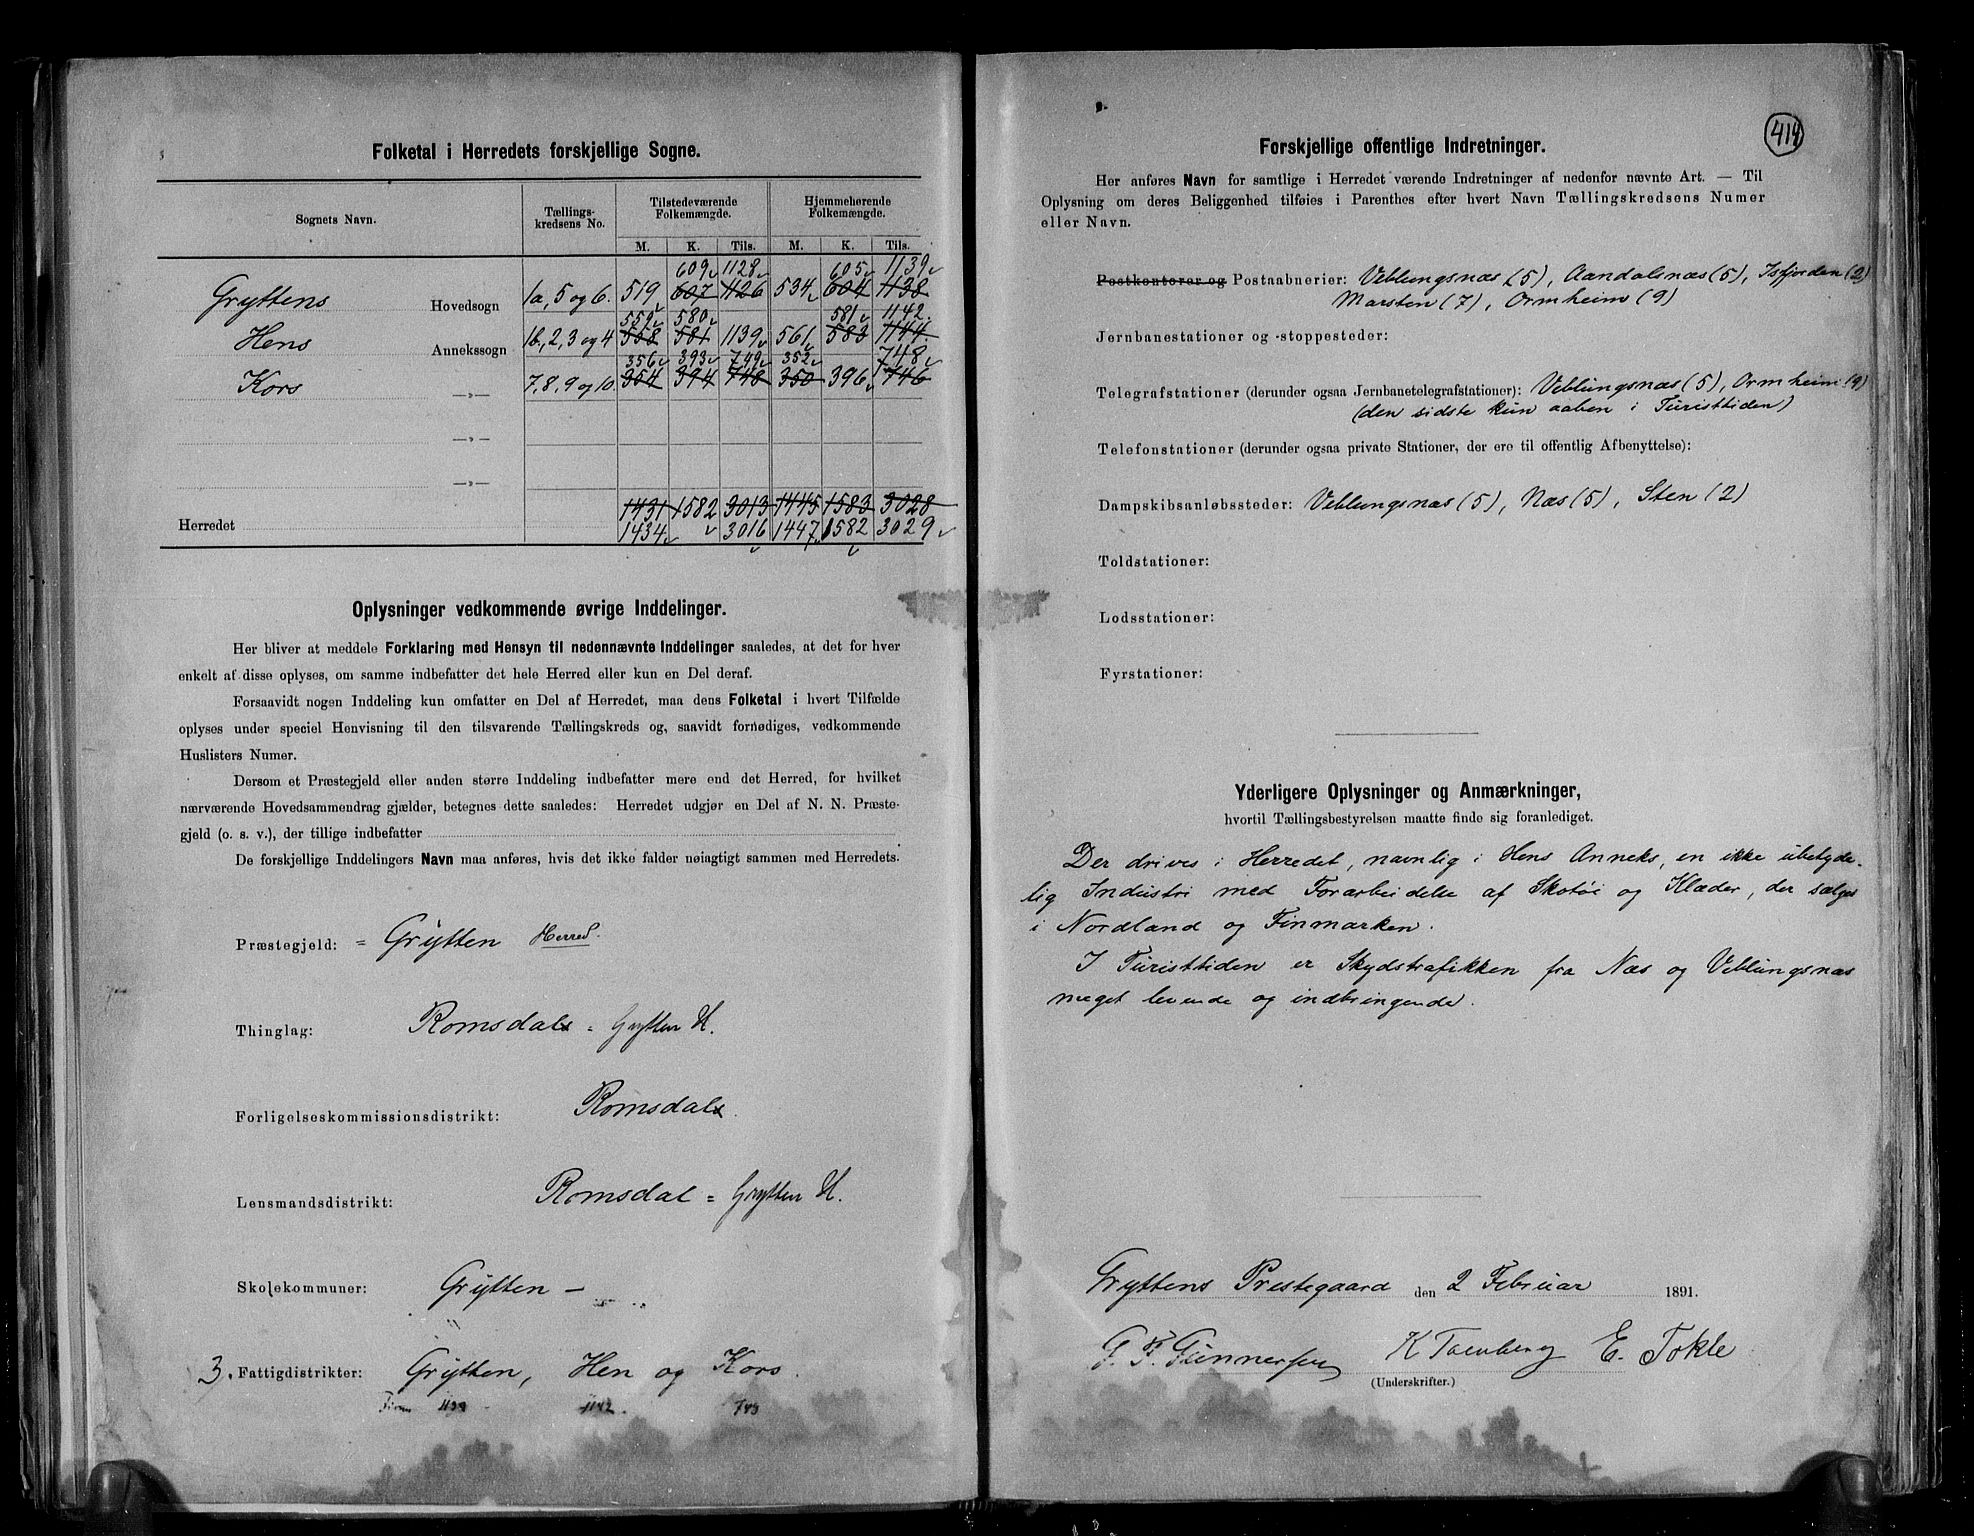 Folketal i Herredets forskjellige Sogne.
Sognets Navn. Tællings-kredsens No. Tilstedeværende Folkemængde. Hjemmehørende Folkemængde.
M. K. Tils. M. K. Tils.
609 1128 605 1139
Gryttens Hovedsogn 1a, 5 og 6. 519 607 1126 534 604 1138
559 580 581 1142
Hens Annekssogn 1b, 2, 3 og 4 558 581 1139 561 583 1144
356 393 749 352 748
Kors —„— 7, 8, 9 og 10 354 394 748 350 396 746
—„—
—„—
1431 1582 3013 1445 1583 3028
Herredet 1434 3016 1447 1582 3029
Oplysninger vedkommende øvrige Inddelinger.
Her bliver at meddele Forklaring med Hensyn til nedennævnte Inddelinger saaledes, at det for hver
enkelt af disse oplyses, om samme indbefatter det hele Herred eller kun en Del deraf.
Forsaavidt nogen Inddeling kun omfatter en Del af Herredet, maa dens Folketal i hvert Tilfælde
oplyses under speciel Henvisning til den tilsvarende Tællingskreds og, saavidt fornødiges, vedkommende
Huslisters Numer.
Dersom et Præstegjeld eller anden større Inddeling indbefatter mere end det Herred, for hvilket
nærværende Hovedsammendrag gjælder, betegnes dette saaledes: Herredet udgjør en Del af N. N. Præste-
gjeld (o. s. v.), der tillige indbefatter
De forskjellige Inddelingers Navn maa anføres, hvis det ikke falder nøiagtigt sammen med Herredets.
Præstegjeld: = Grytten Herred.
Thinglag: Romsdals = Grytten H.
Forligelseskommissionsdistrikt: Romsdals.
Lensmandsdistrikt: Romsdal = Grytten H.
Skolekommuner: Grytten –
3. Fattigdistrikter: Grytten, Hen og Kors.
1139 1142.
414
Forskjellige offentlige Indretninger.
Her anføres Navn for samtlige i Herredet værende Indretninger af nedenfor nævnte Art. — Til
Oplysning om deres Beliggenhed tilføies i Parenthes efter hvert Navn Tællingskredsens Numer
eller Navn.
Postkontorer og Postaabnerier: Veblungsnæs (5), Aandalsnæs (5), Isfjorden (2)
Marsten (7), Ormheim (9)
Jernbanestationer og -stoppesteder:
Telegrafstationer (derunder ogsaa Jernbanetelegrafstationer): Veblungsnæs (5), Ormheim (9)
(den sidste kun aaben i Turisttiden)
Telefonstationer (derunder ogsaa private Stationer, der ere til offentlig Afbenyttelse):
Dampskibsanløbssteder: Veblungsnæs (5), Næs (5), Sten (2)
Toldstationer:
Lodsstationer:
Fyrstationer:
Yderligere Oplysninger og Anmærkninger,
hvortil Tællingsbestyrelsen maatte finde sig foranlediget.
Der drives i Herredet, navnlig i Hens Anneks, en ikke ubetyde-
lig Industri med Forarbeidelse af Skotøi og Klæder, der sælges
i Nordland og Finmarken.
I Turisttiden er Skydstrafikken fra Næs og Veblungsnæs
meget levende og indbringende.
Gryttens Prestegaard den 2 Februar 1891.
G. F. Gunnersen K Tornberg E. Tokle
(Underskrifter.)